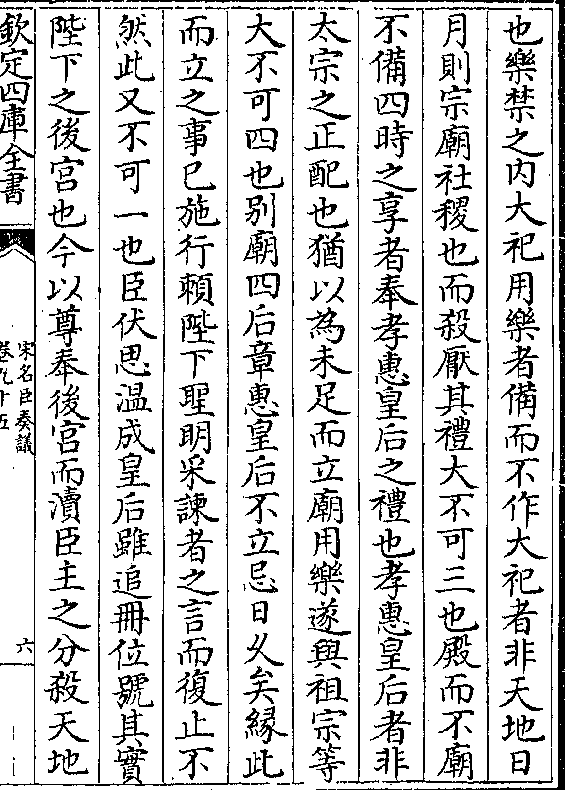 也樂禁之内大祀用樂者備而不作大祀者非天地日
月則宗廟社稷也而殺厭其禮大不可三也殿而不廟
不備四時之享者奉孝惠皇后之禮也孝惠皇后者非
太宗之正配也猶以為未足而立廟用樂遂與祖宗等
大不可四也别廟四后章惠皇后不立忌日乆矣縁此
而立之事已施行頼陛下聖明采諫者之言而復止不
然此又不可一也臣伏思温成皇后雖追冊位號其實
陛下之後宫也今以尊奉後宫而瀆臣主之分殺天地
欽定四庫全書
宋名臣奏議
卷九十五
六